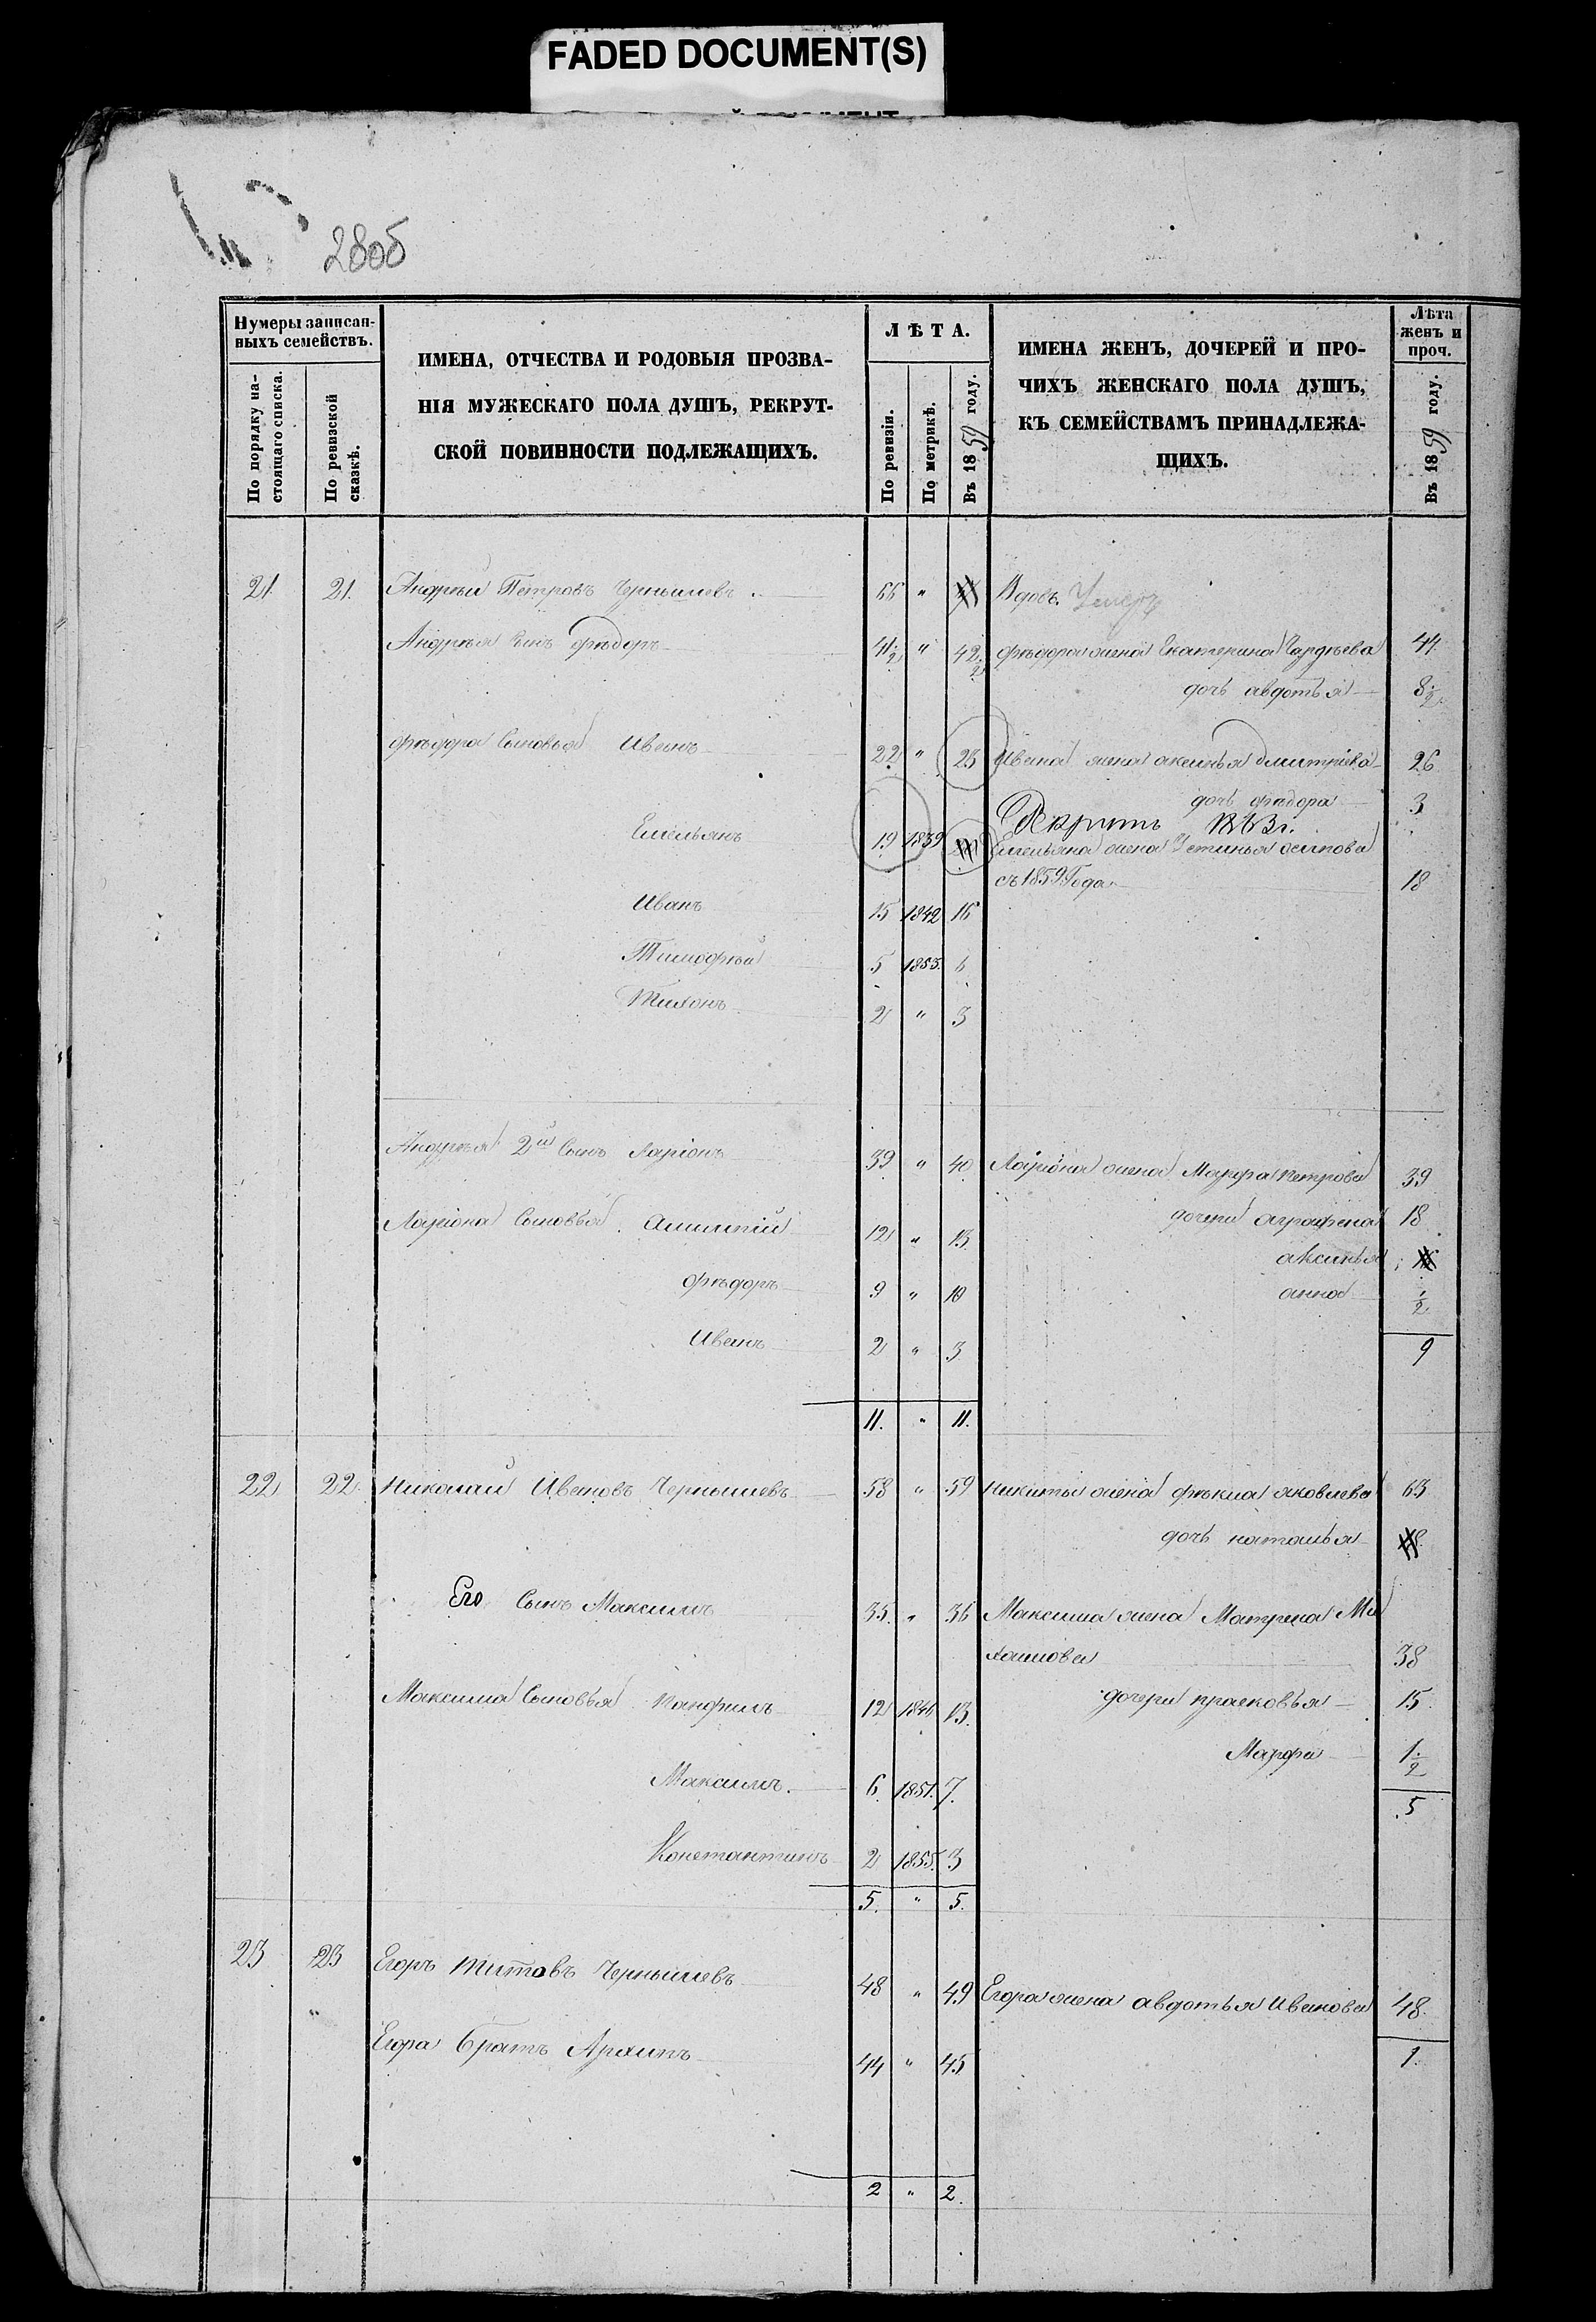 FADED DOCUMENT(S)
280б
Нумеры записан-
ныхъ семействъ.
По порядку на-
стоящаго списка.
По ревизской
сказкѣ.
ИМЕНА, ОТЧЕСТВА И РОДОВЫЯ ПРОЗВА-
НІЯ МУЖЕСКАГО ПОЛА ДУШЪ, РЕКРУТ-
СКОЙ ПОВИННОСТИ ПОДЛЕЖАЩИХЪ.
ЛѢТА.
По ревизіи.
По метрикѣ.
Въ 1859 году.
ИМЕНА ЖЕНЪ, ДОЧЕРЕЙ И ПРО-
ЧИХЪ ЖЕНСКАГО ПОЛА ДУШЪ,
КЪ СЕМЕЙСТВАМЪ ПРИНАДЛЕЖА-
ЩИХЪ.
Лѣта
женъ и
проч.
Въ 1859 году.
21 21. Андрей Петровъ Чернышевъ 66 " Вдовъ. Умеръ
Андрея сынъ Ѳедоръ 41½ " 42½ Ѳедора жена Екатерина 44
дочь авдотья 8½
Ѳедора сыновья Иванъ 22 " 23 Ивана жена аксинья дмитріева 26
дочь Ѳедора 3
Рекрутъ 1863г.
Емельянъ 19 1839 Емельяна жена Устинья осипова
съ 1859 Года 18
Иванъ 15 1842 16
Тимофѣй 5 1853. 6
Тихонъ 2 " 3
Андрея 2й Сынъ Ларіонъ 39 " 40 Ларіона жена Марфа петрова 39
Ларіона Сыновья 12 " 13. дочери аграфена 18
аксинья
Ѳедоръ 9 " 10 анна ½
Иванъ 2 " 3 9
11. " 11.
22 22 Николай Ивановъ Чернышевъ 58 " 59 Никиты жена Ѳекла яковлева 63
дочь наталья
Его Сынъ Максимъ 35. " 36 Максима жена Матрена Ми
хаилова 38
Максима Сыновья Панфилъ 12 1846 13. дочери прасковья 15
Марфа 1½
Максимъ. 6 1851. 7. 5
Константинъ 2 1855. 3
5. " 5.
23 23 Егоръ Титовъ Чернышевъ 48 " 49 Егора жена авдотья Иванова 48
Егора братъ Архипъ 44 " 45 1.
2 " 2.